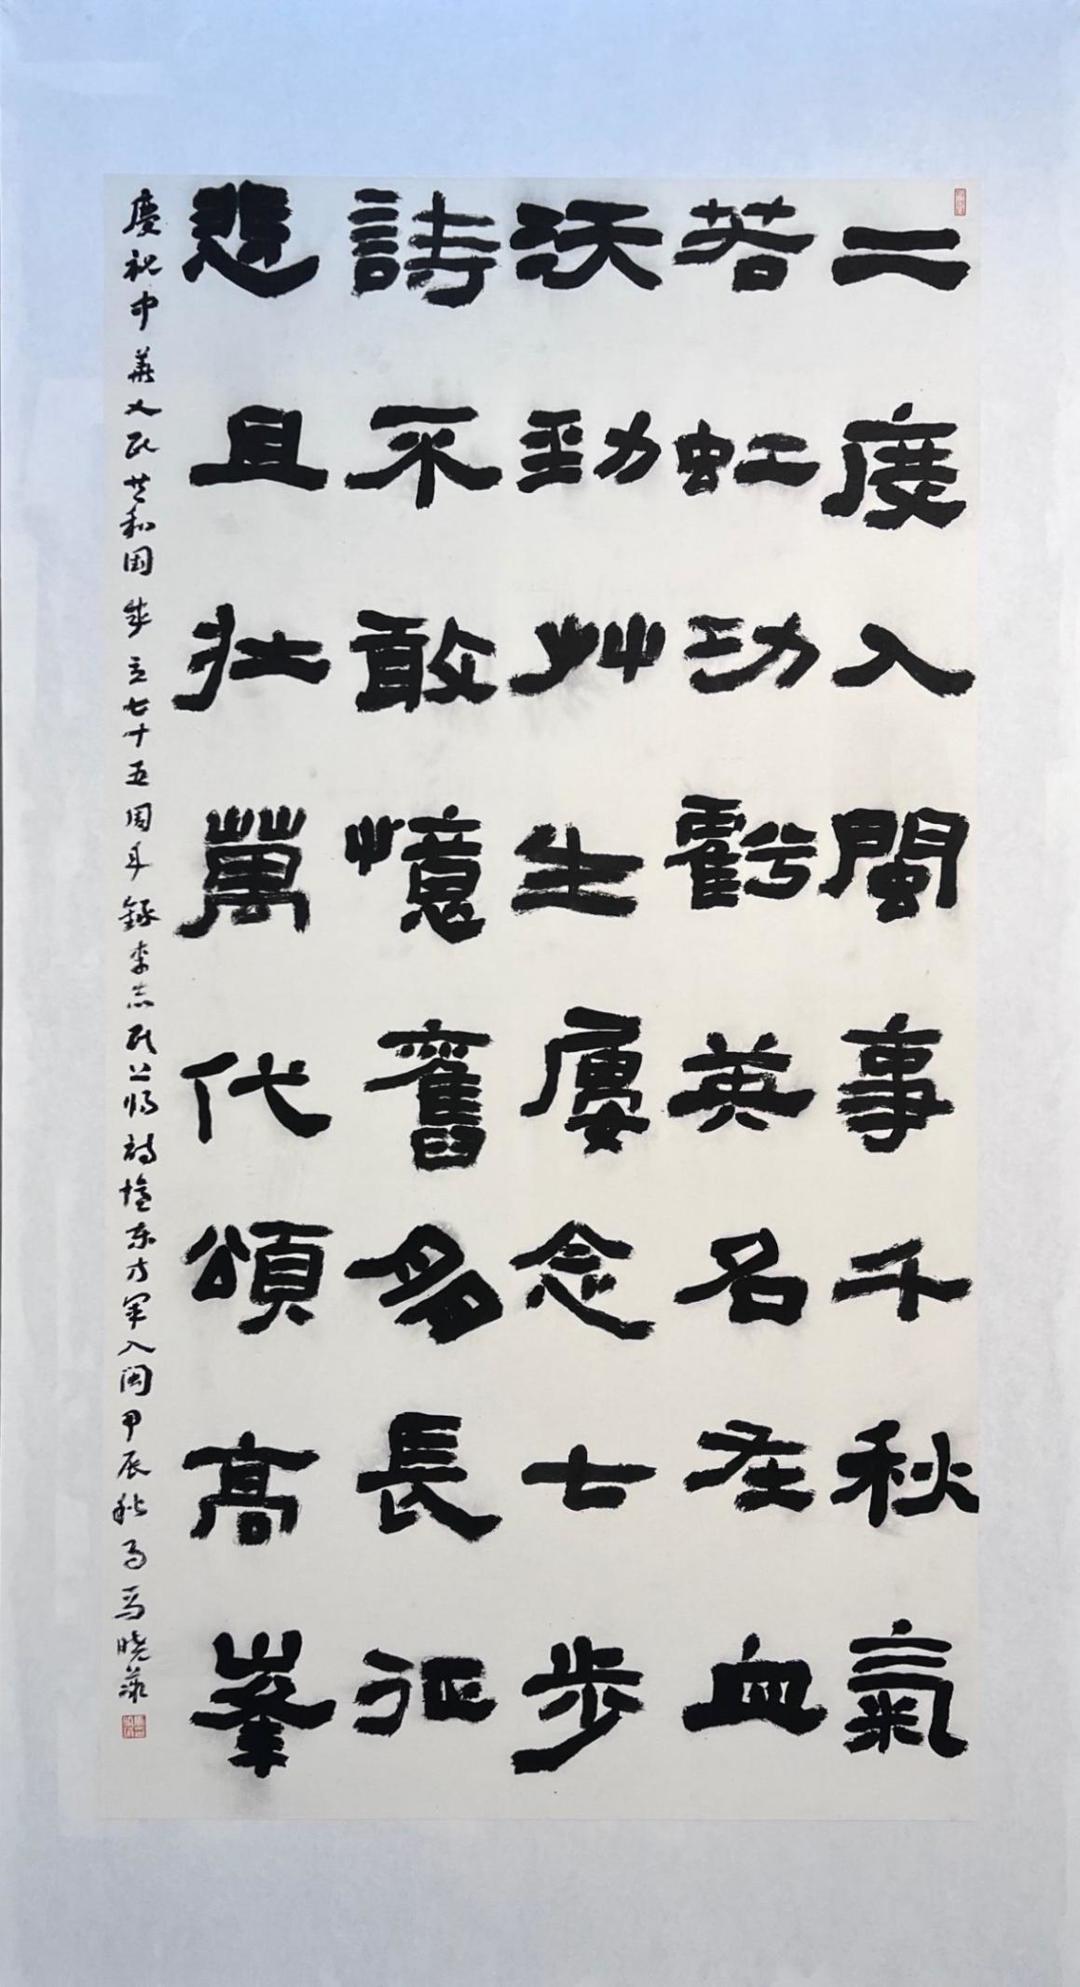 二度入閩事千秋氣
若虹功虧英名在血
沃勁艸生屢念士步
詩不敢憶舊多長征
悲且壯萬代頌高峯
慶祝中華人民共和国成立七十五周年錄李志民上將詩憶东方军入闽甲辰秋馬晓